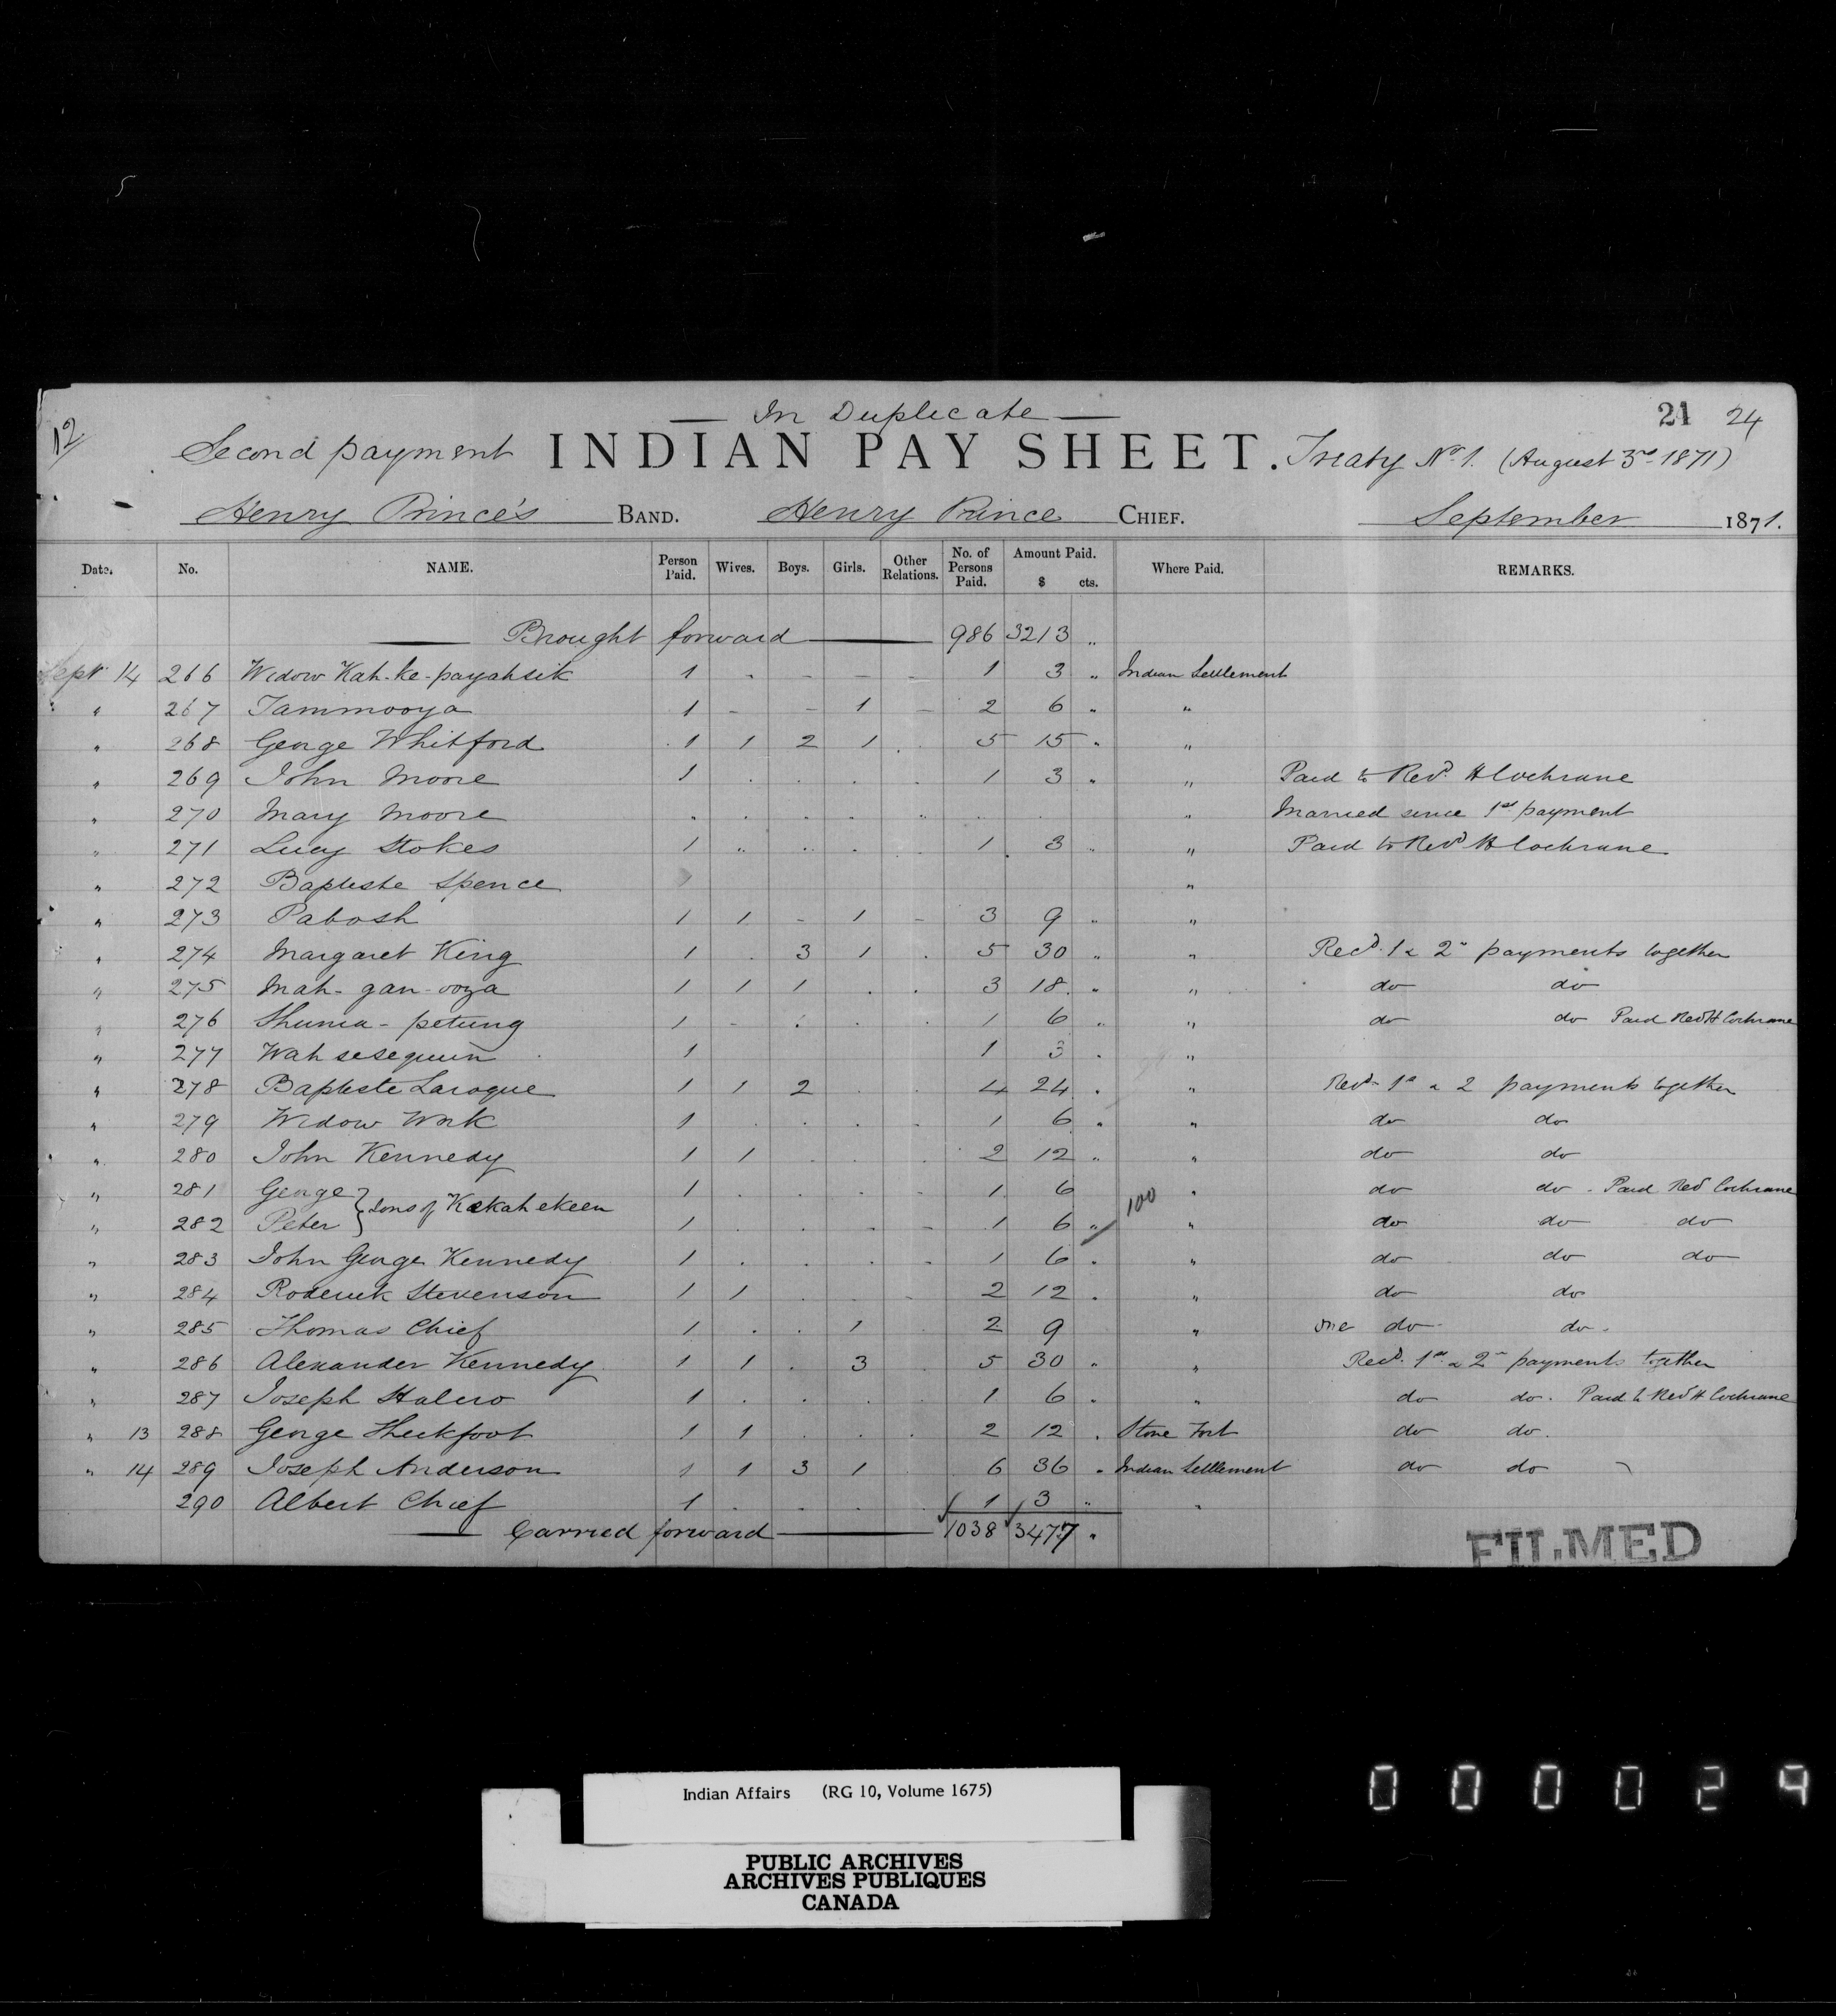 In Duplicate
12
21 24
Second payment INDIAN PAY SHEET. Treaty No 1. (August 3rd 1871)
Henry Prince's BAND. Henry Prince CHIEF. September 1871.
Date. No. NAME. Person Paid. Wives. Boys. Girls. Other Relations. No. of Persons Paid. Amount Paid. $ cts. Where Paid. REMARKS.
Brought forward 986 3213 "
Sept 14 266 Widow Kah-ke-payahsik 1 . - - - 1 3 " Indian Settlement
" 267 Tammooya 1 - - 1 - 2 6 " "
" 268 George Whitford 1 1 2 1 . 5 15 " "
" 269 John Moore 1 . . . . 1 3 " " Paid to Revd. H Cochrane
" 270 Mary Moore " . . . " . . " Married since 1st payment
" 271 Lucy Stokes 1 " . . . 1 3 " " Paid to Revd H Cochrane
" 272 Baptiste Spence "
" 273 Pabosh 1 1 - 1 - 3 9 " "
" 274 Margaret King 1 . 3 1 . 5 30 " " Recd. 1 & 2" payments together
" 275 Mah-gan-ooya 1 1 1 . . 3 18 " " do do
" 276 Shunia-petung 1 - . . . 1 6 " " do do Paid Revd H Cochrane
" 277 Wah sesequin 1 1 3 . "
" 278 Baptiste Laroque 1 1 2 . . 4 24 . " Recd. 1st & 2 payments together
" 279 Widow Work 1 . . . . 1 6 " " do do
" 280 John Kennedy 1 1 . . . 2 12 " " do do
" 281 George } sons of Kakahekeen 1 . . . - 1 6 100 " do do - Paid Revd Cochrane
" 282 Peter 1 . . - - 1 6 " " do do do
" 283 John George Kennedy 1 . . . - 1 6 . " do do do
" 284 Roderick Stevenson 1 1 . . - 2 12 . " do do
" 285 Thomas Chief 1 . . 1 . 2 9 " one do do.
" 286 Alexander Kennedy 1 1 . 3 5 30 " " Recd. 1st & 2" payments together
" 287 Joseph Halcro 1 . . . . 1 6 . " do do. Paid to Revd H Cochrane
" 13 288 George Thickfoot 1 1 . . . 2 12 . Stone Fort do do.
" 14 289 Joseph Anderson 1 1 3 1 6 36 " Indian Settlement do do
290 Albert Chief 1 . . . . 1 3 " "
Carried forward 1038 3477 "
FILMED
Indian Affairs (RG 10, Volume 1675)
PUBLIC ARCHIVES
ARCHIVES PUBLIQUES
CANADA
000029